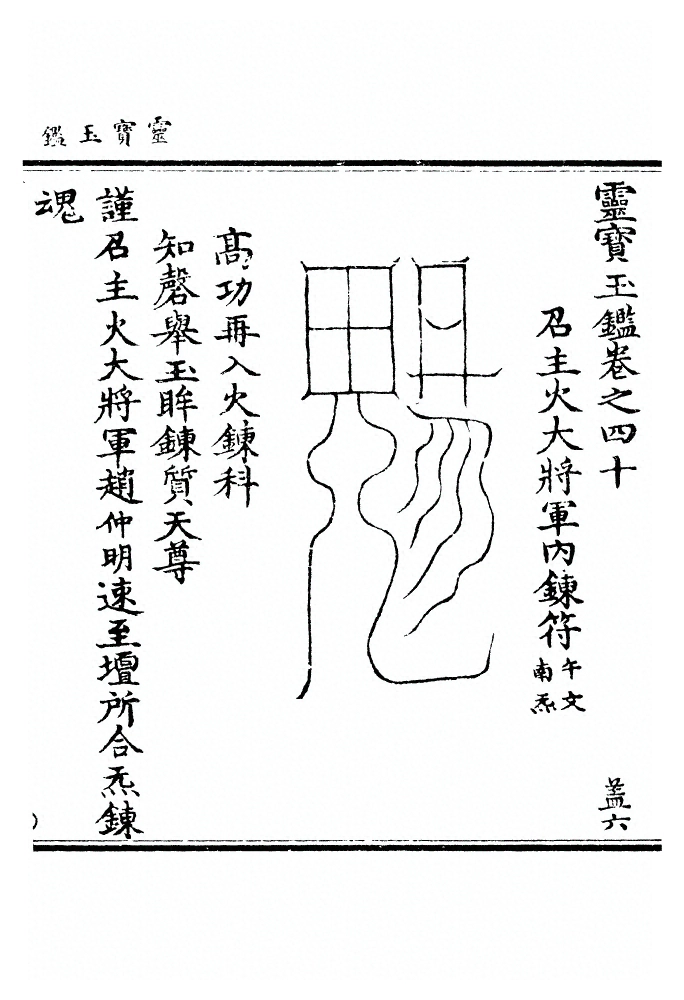 靈寶玉鑑
靈寶玉鑑卷之四十
蓋六
召主火大將軍內鍊符
午文
南炁
高功再入火鍊科
知磬舉玉眸鍊質天尊
謹召主火大將軍趙仲明速至壇所合炁鍊
魂